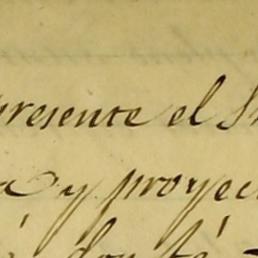 presente el S
a y proyec
doy fé